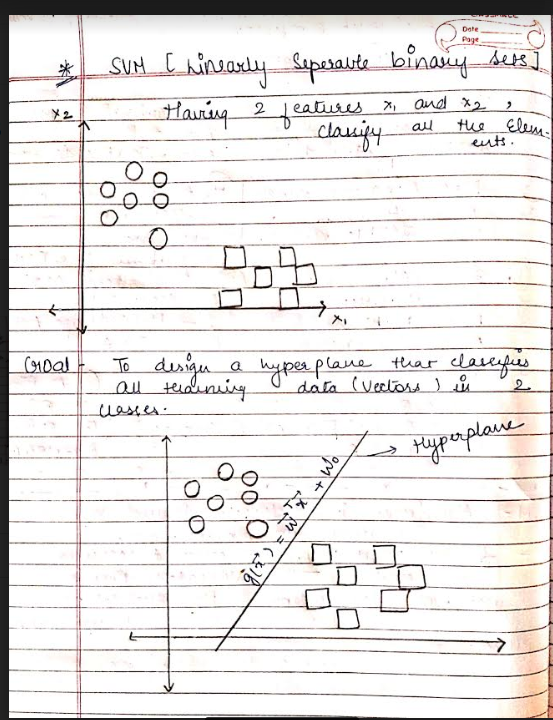 Date
Page
* SVM [ Linearly Seperable binary sets ]
Having 2 features x₁ and x₂ ,
classify all the Elem-
ents.
x₂
x₁
Goal - To design a hyperplane that classifies
all training data (vectors) in 2
classes.
Hyperplane
g(x⃗) = w⃗ᵀx⃗ + w₀